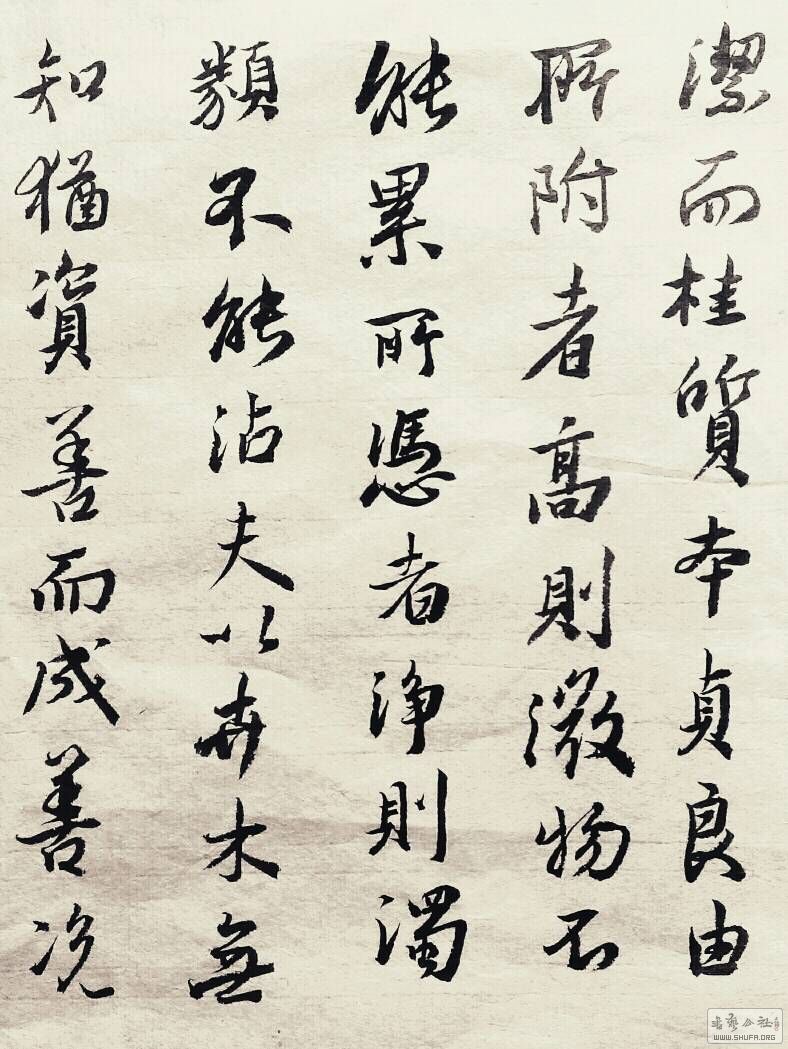 潔而桂質本貞良由
所附者高則微物不
能累所憑者淨則濁
類不能沾夫以卉木無
知猶資善而成善況
书艺公社
WWW.SHUFA.ORG